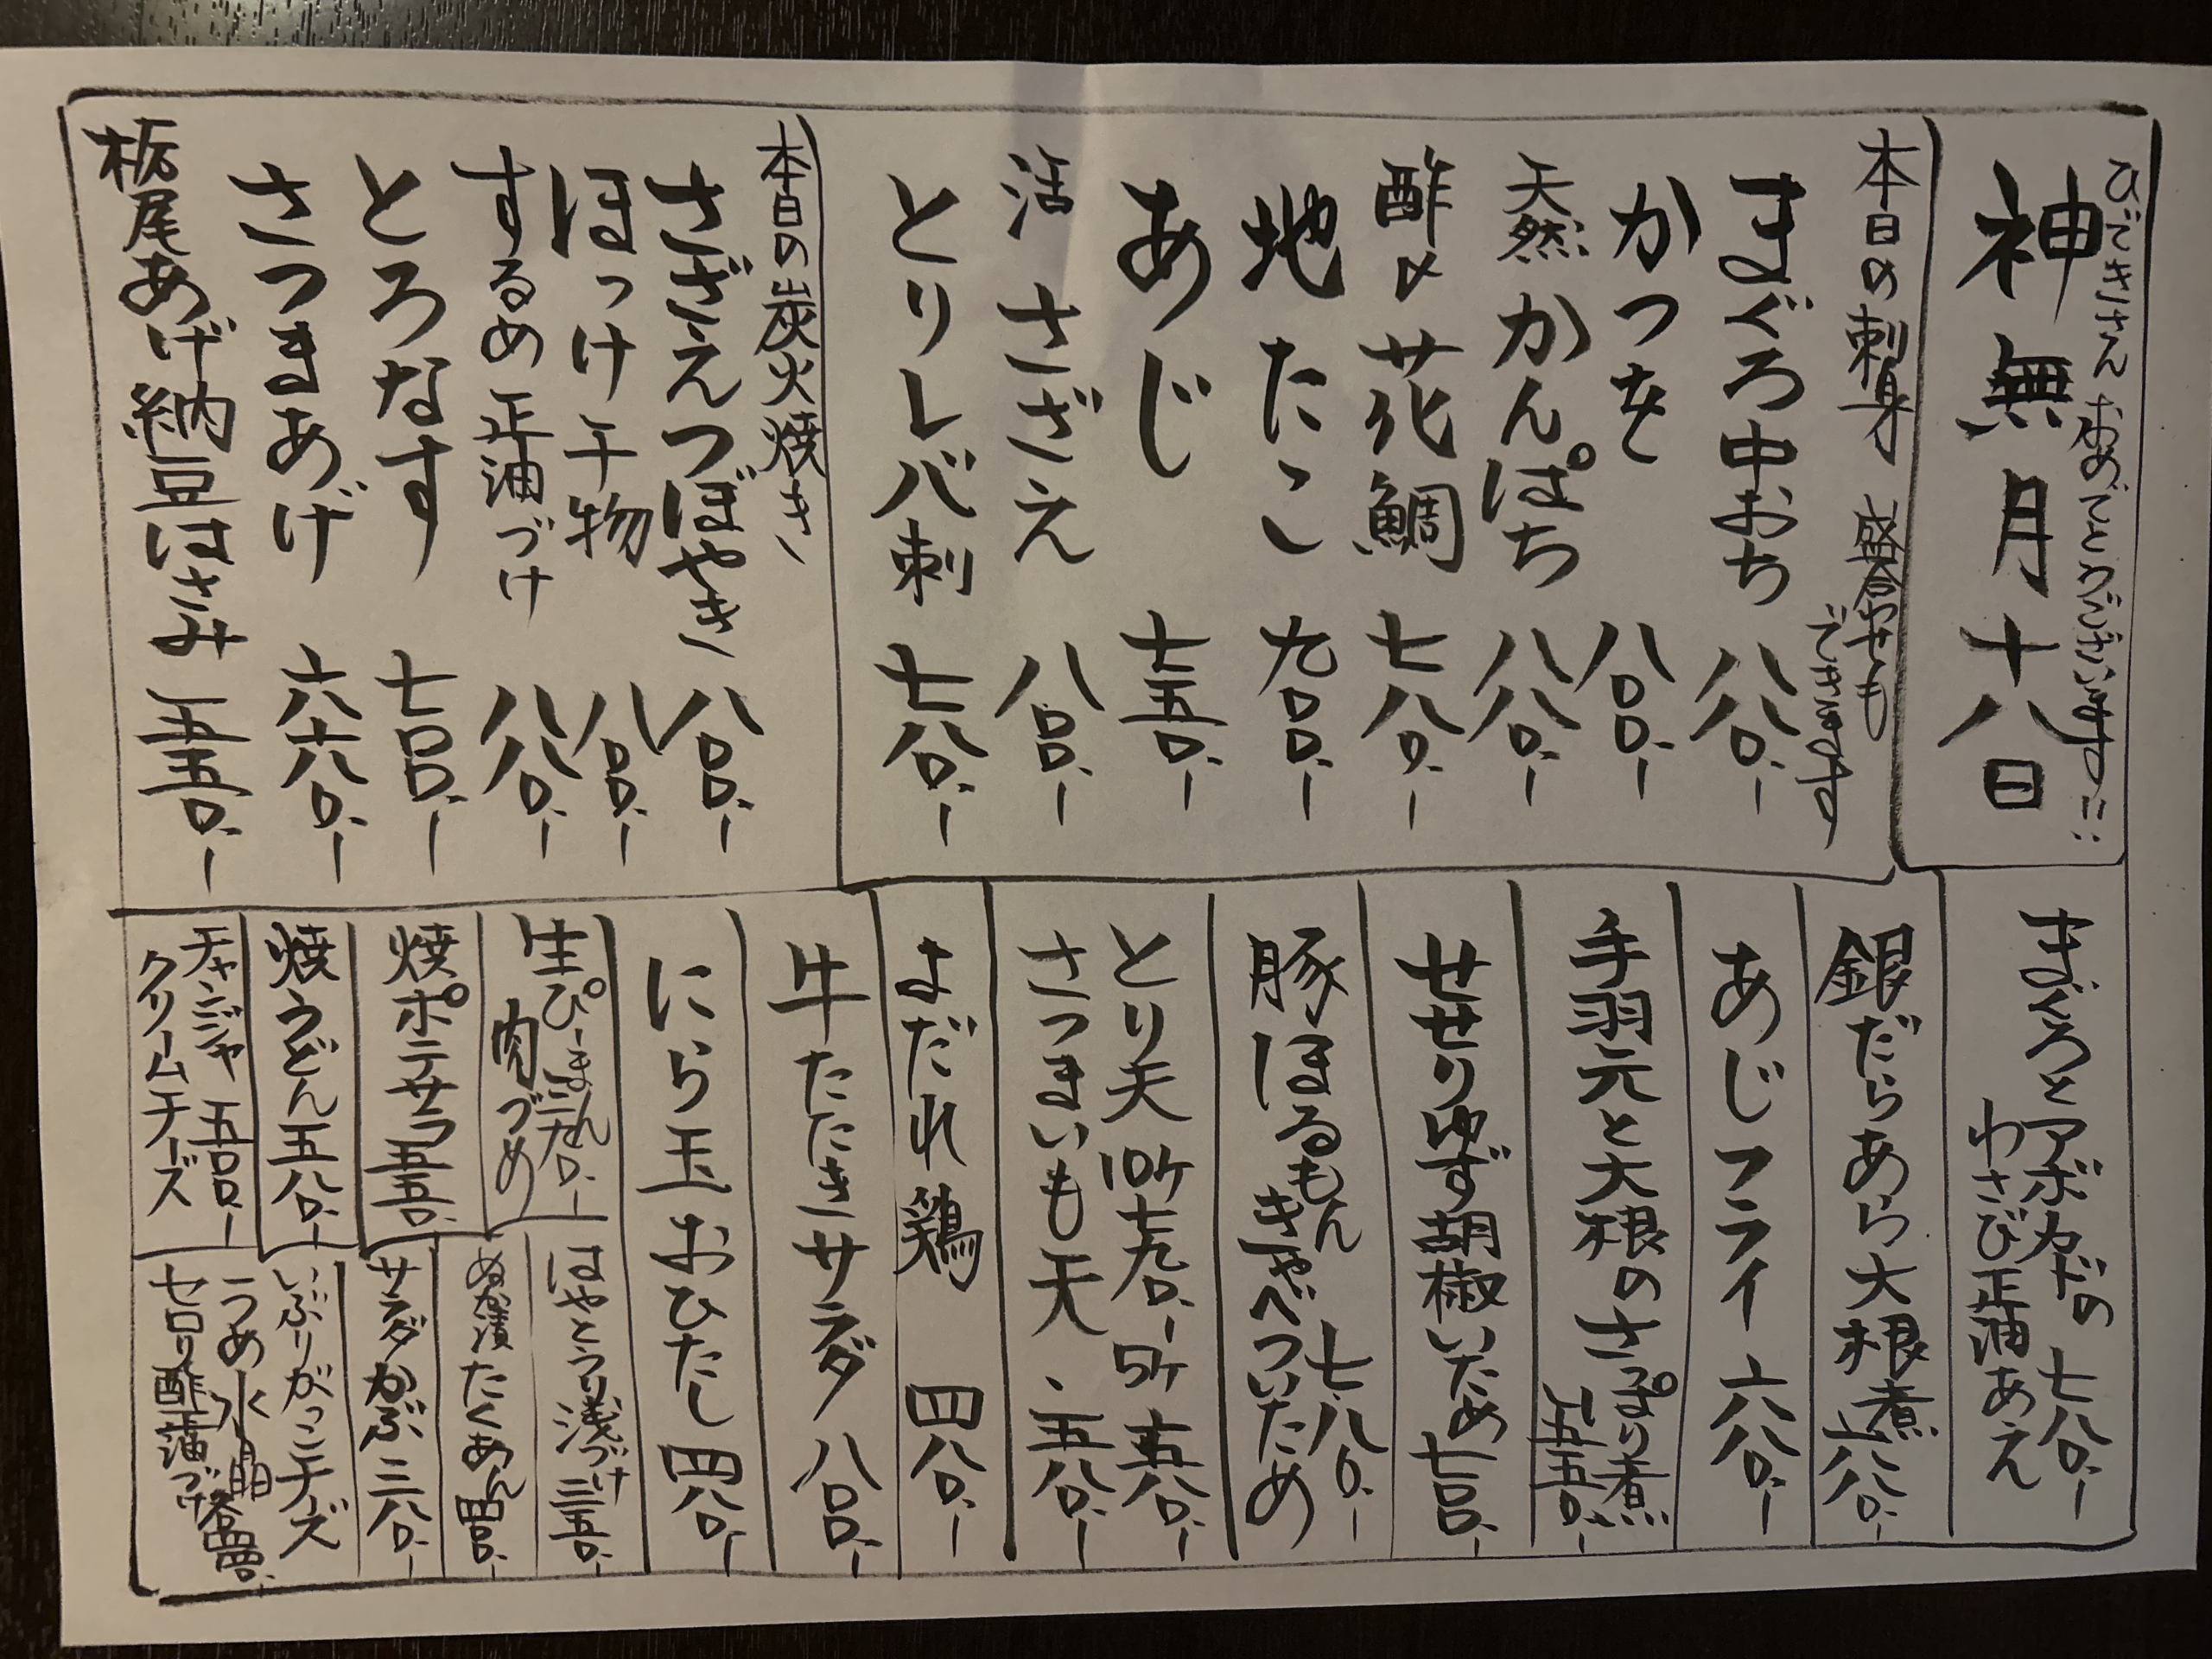 ひできさんおめでとうございます!!
神無月十八日
本日の刺身 盛合わせも
できます
まぐろ中おち 八八〇.-
かつを 八〇〇.-
天然かんぱち 八八〇.-
酢〆花鯛 七八〇.-
地たこ 九〇〇.-
あじ 七五〇.-
活さざえ 八〇〇.-
とりレバ刺 七八〇.-
本日の炭火焼き
さざえつぼやき 八〇〇.-
ほっけ干物 八〇〇.-
するめ正油づけ 八八〇.-
とろなす 七〇〇.-
さつまあげ 六六〇.-
栃尾あげ納豆はさみ 五五〇.-
まぐろとアボカドの 七八〇.-
わさび正油あえ
銀だらあら大根煮 八八〇.-
あじフライ 六八〇.-
手羽元と大根のさっぱり煮
五五〇.-
せせりゆず胡椒いため 七〇〇.-
豚ほるもん 七八〇.-
きゃべついため
とり天 10ケ 七九〇.- 5ケ 四八〇.-
さつまいも天 五八〇.-
よだれ鶏 四八〇.-
牛たたきサラダ 八〇〇.-
にら玉おひたし 四八〇.-
生ぴーまん
肉づめ
焼ポテサラ 五五〇.-
焼うどん 五八〇.-
チャンジャ 五〇〇.-
クリームチーズ
はやとうり浅づけ 三五〇.-
ぬか漬たくあん 四〇〇.-
サラダかぶ 三八〇.-
いぶりがっこチーズ
うめ水晶
セロリ酢正油づけ